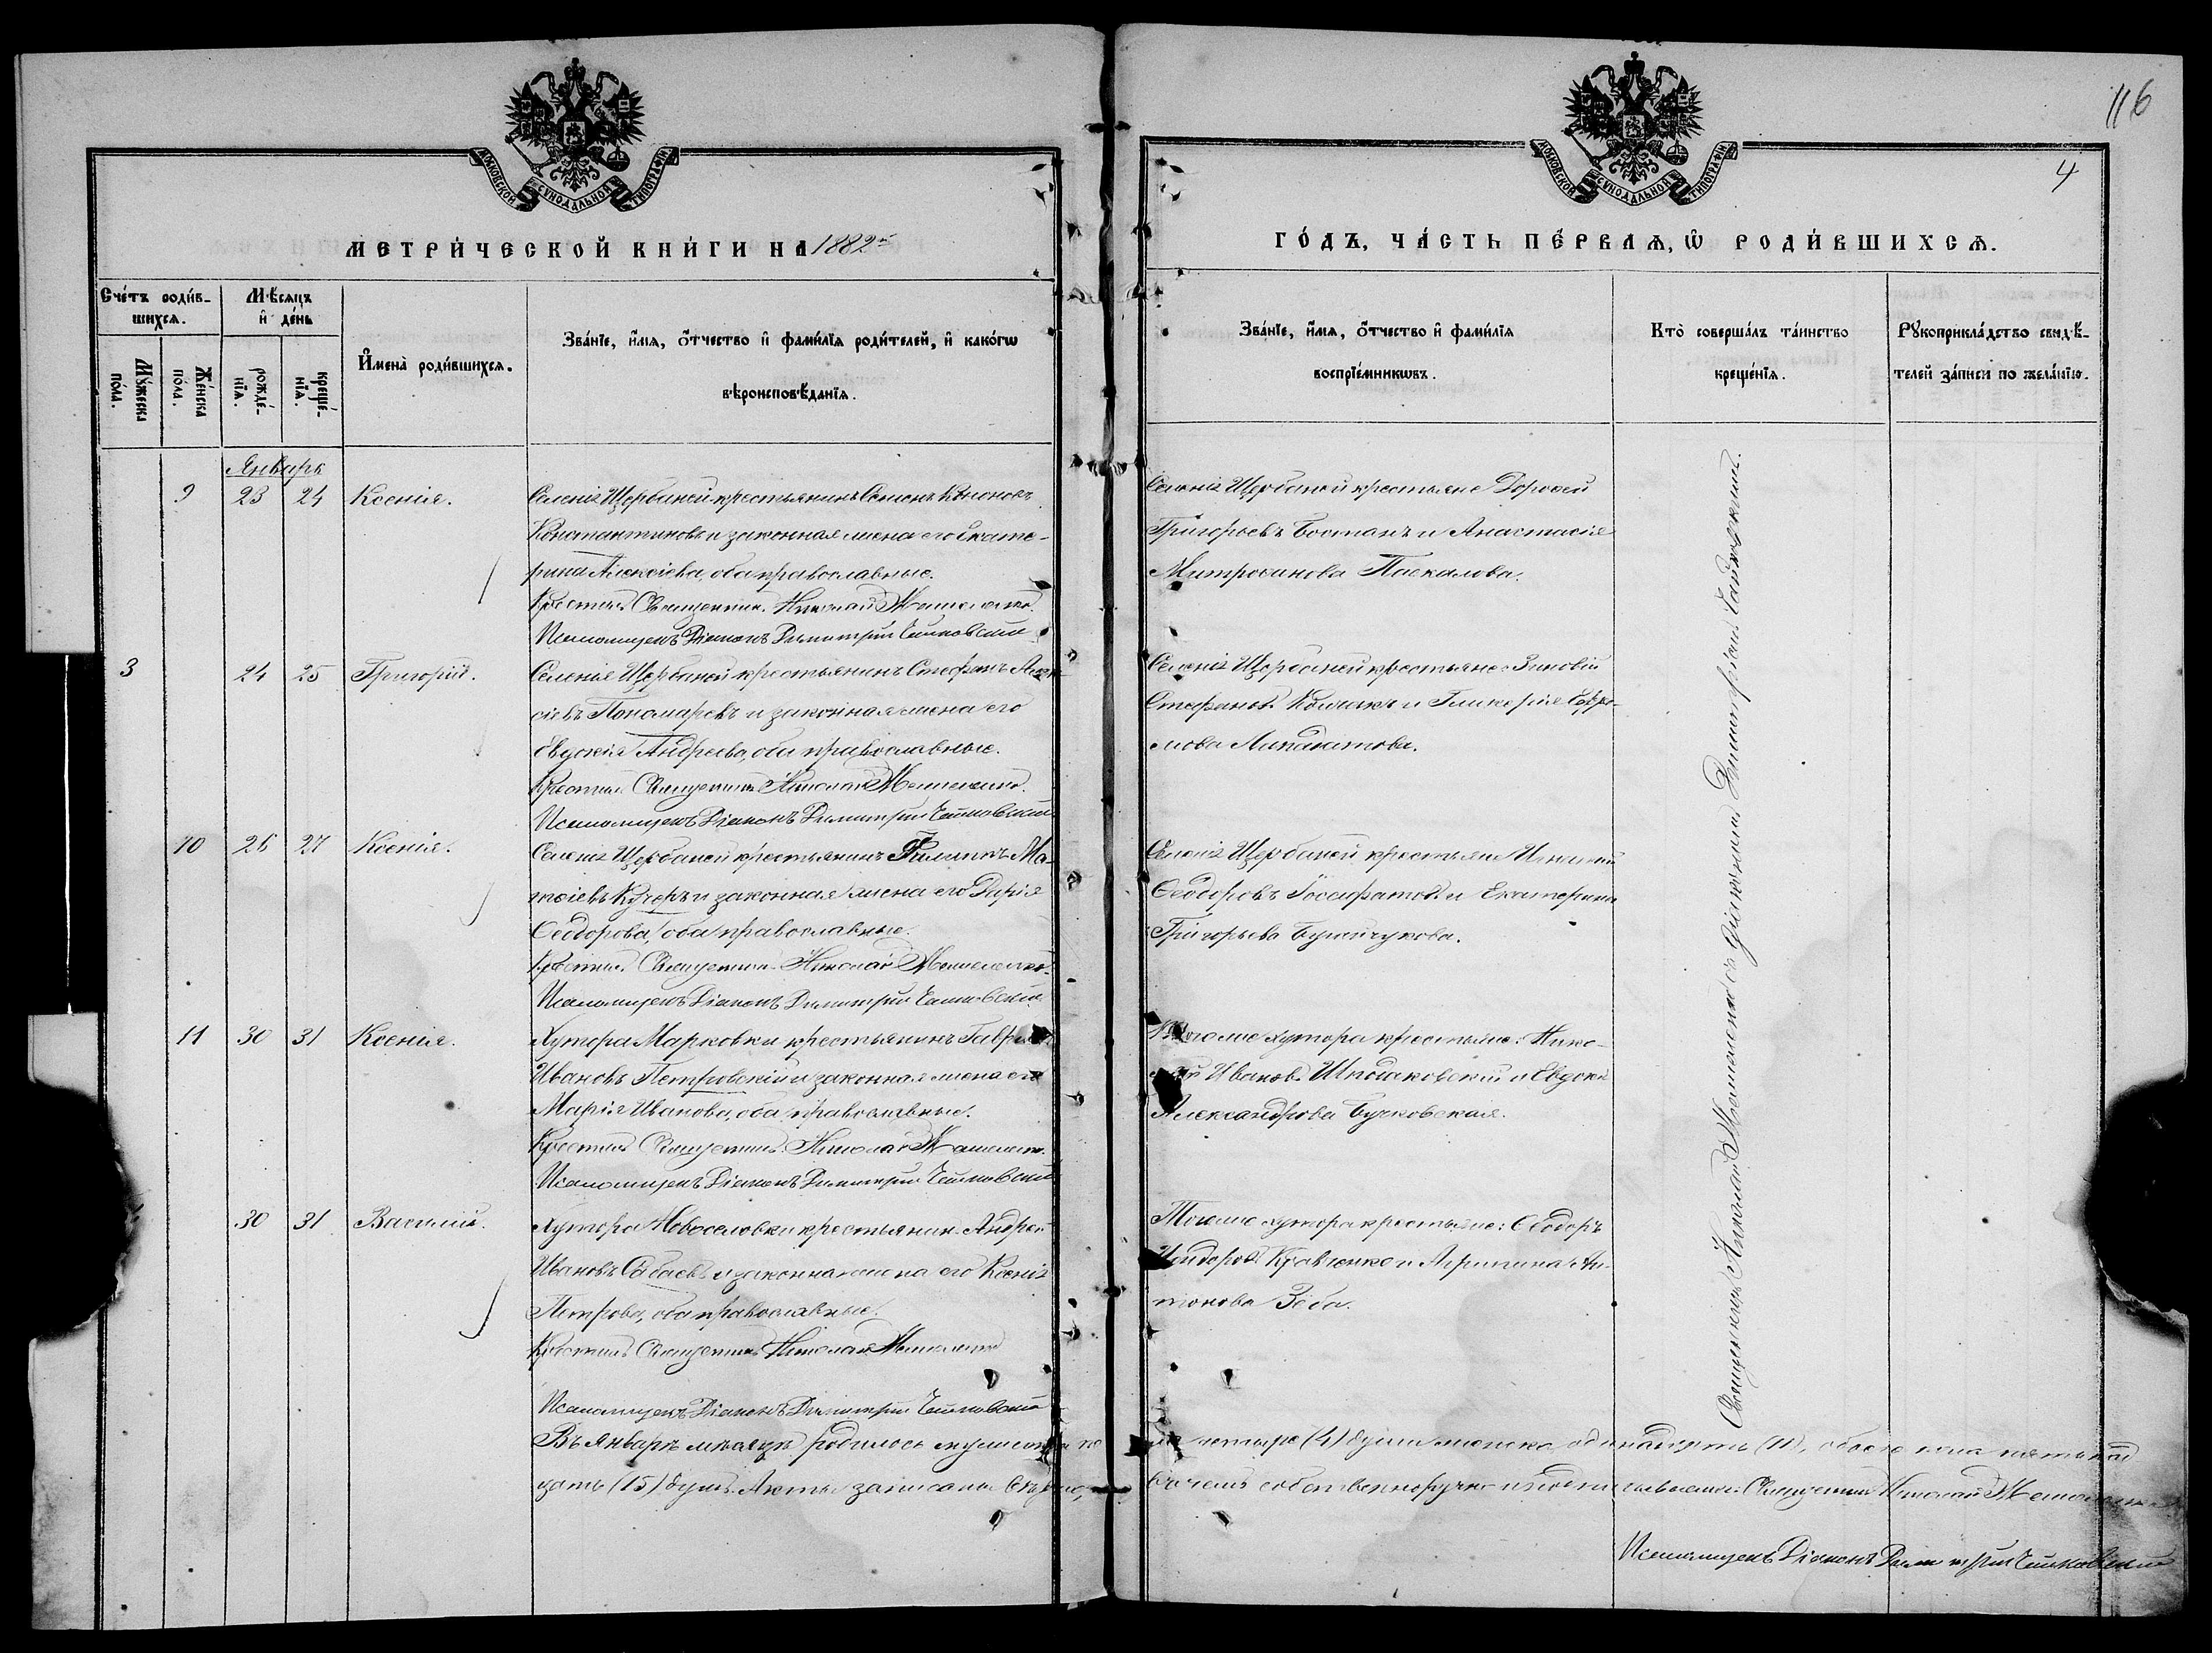 116
4
МОСКОВСКОЙ СѴНОДАЛЬНОЙ ТИПОГРАФІИ
МОСКОВСКОЙ СѴНОДАЛЬНОЙ ТИПОГРАФІИ
МЕТРИ́ЧЕСКОЙ КНИ́ГИ НА 1882й
ГО́ДЪ, ЧА́СТЬ ПЕ́РВАѦ, Ѡ РОДИ́ВШИХСѦ.
Сче́тъ роди́в-
шихсѧ.
Мѣ́сѧцъ
и҆ де́нь
Му́жеска
по́ла.
Же́нска
по́ла.
рожде́-
нїѧ.
креще́-
нїѧ.
И҆мена̀ роди́вшихсѧ.
Зва́нїе, и҆́мѧ, ѻ҆́тчество и҆ фами́лїѧ роди́телей, и҆ како́гѡ
вѣроисповѣ́данїѧ.
Зва́нїе, и҆́мѧ, ѻ҆́тчество и҆ фами́лїѧ
воспрїе́мникѡвъ.
Кто̀ соверша́лъ та́инство
креще́нїѧ.
Рꙋкоприкла́дство свидѣ́-
телей за́писи по жела́нїю.
Январь
9 23 24 Ксенія.
Селенія Щербаней крестьянинъ Семенъ Кононовъ
Константиновъ и законная жена его Екате-
рина Алексіева, оба православные.
Крестил Священник Николай
Псаломщикъ Діаконъ Димитрій
Селенія Щербаней крестьяне Дорофей
Григорьевъ Бостанъ и Анастасія
Митрофанова Паскалова.
3 24 25 Григорій.
Селенія Щербаней крестьянинъ Стефанъ Алек-
сіевъ Пономаревъ и законная жена его
Евдокія Андреева, оба православные.
Крестил Священник Николай
Псаломщикъ Діаконъ Димитрій
Селенія Щербаней крестьяне Зиновій
Стефановъ и Гликерія Ефре-
мова
10 26 27 Ксенія.
Селенія Щербаней крестьянинъ Филиппъ Ма-
тѳіевъ Кучеръ и законная жена его Дарія
Ѳеодорова, оба православные.
Крестил Священник Николай
Псаломщикъ Діаконъ Димитрій
Селенія Щербаней крестьяне Игнатій
Ѳеодоровъ Іосафатовъ и Екатерина
Григорьева
11 30 31 Ксенія.
Хутора Марковки крестьянинъ Гавріилъ
Ивановъ Петровскій и законная жена его
Марія Иванова, оба православные.
Крестилъ Священникъ Николай
Псаломщикъ Діаконъ Димитрій
Тогоже хутора крестьяне: Нико-
лай Ивановъ и Евдокія
Александрова Бучковская.
30 31 Василій.
Хутора Новоселовки крестьянин Андрей
Ивановъ и законная жена его Ксенія
Петрова, оба православные.
Крестилъ Священникъ Николай
Псаломщикъ Діаконъ Димитрій
Тогоже хутора крестьяне: Ѳеодоръ
Исидоровъ Кравченко и Агрипина Ан-
тонова Зеба.
Священникъ Николай съ Діакономъ Димитріемъ
Въ Январѣ мѣсяцѣ родилось мужеска по ла четыре (4) души женска одинадцять (11), обоего пола пятьнад
цать (15) душъ. Акты записаны вѣрно, въ чемъ собственноручно и подписываемся: Священникъ Николай
Псаломщикъ Діаконъ Димитрій